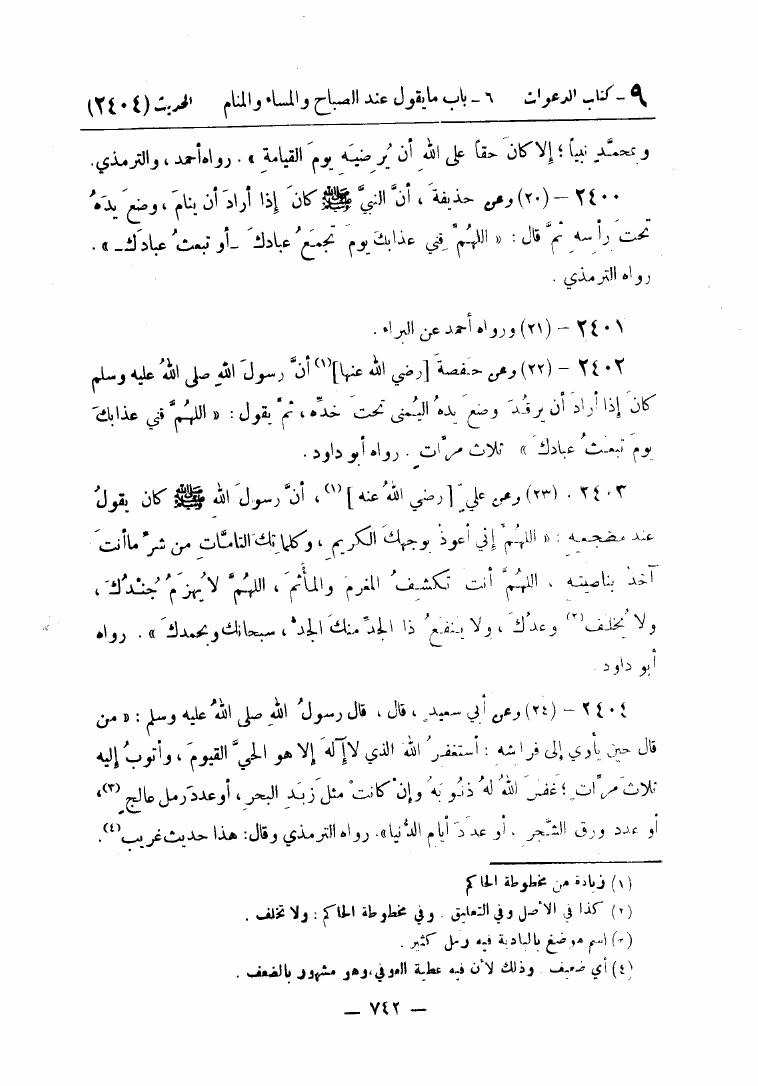 ٩ - كتاب الدعوات ٦ - باب ما يقول عند الصباح والمساء والمنام الحديث (٢٤٠٤)
وبمحمَّدٍ نبياً ؛ إلا كانَ حقاً على اللهِ أن يُرضيَه يومَ القيامةِ » . رواه أحمد ، والترمذي .
٢٤٠٠ – (٢٠) وعن حذيفةَ ، أنَّ النبيَّ ﷺ كانَ إذا أرادَ أن ينامَ ، وضعَ يدَهُ
تحتَ رأسِه ثمَّ قال : « اللهُمَّ قِني عذابكَ يومَ تجمَعُ عبادكَ ـ أو تبعثُ عبادَك ـ » .
رواه الترمذي .
٢٤٠١ – (٢١) ورواه أحمد عن البراء .
٢٤٠٢ – (٢٢) وعن حفصةَ [رضي الله عنها](١) أنَّ رسولَ اللهِ صلى اللهُ عليه وسلم
كانَ إذا أرادَ أن يرقُدَ وضعَ يدهُ اليُمنى تحتَ خدِّه ، ثمَّ يقول : « اللهُمَّ قني عذابكَ
يومَ تبعثُ عبادكَ » ثلاث مرَّاتٍ . رواه أبو داود .
٢٤٠٣ . (٢٣) وعن عليٍّ [رضي اللهُ عنه](١) ، أنَّ رسولَ اللهِ ﷺ كان يقولُ
عند مضجعِه : « اللهُمَّ إني أعوذُ بوجهكَ الكريمِ ، وكلماتِكَ التامَّاتِ من شرِّ ما أنتَ
آخذٌ بناصيتِه ، اللهُمَّ أنتَ تكشفُ المغرمَ والمأثمَ ، اللهُمَّ لا يُهزَمُ جُندُكَ ،
ولا يُخلف(٢) وعدُكَ ، ولا ينفعُ ذا الجدِّ منكَ الجدُّ ، سبحانك وبحمدكَ » . رواه
أبو داود .
٢٤٠٤ – (٢٤) وعن أبي سعيدٍ ، قال ، قال رسولُ اللهِ صلى اللهُ عليه وسلم : « من
قال حين يأوي إلى فراشِه : أستغفرُ اللهَ الذي لا إلهَ إلا هو الحيَّ القيومَ ، وأتوبُ إليه
ثلاثَ مرَّاتٍ ؛ غفرَ اللهُ لهُ ذنوبَهُ وإنْ كانتْ مثلَ زبَدِ البحرِ ، أو عددَ رمل عالجٍ(٣) ،
أو عدد ورق الشَّجرِ ، أو عددَ أيامِ الدُّنيا» . رواه الترمذي وقال : هذا حديث غريب(٤) .
(١) زيادة من مخطوطة الحاكم
(٢) كذا في الأصل وفي التعليق . وفي مخطوطة الحاكم : ولا تخلف .
(٣) اسم موضع بالبادية فيه رمل كثير .
(٤) أي ضعيف . وذلك لأن فيه عطية العوفي ، وهو مشهور بالضعف .
— ٧٤٢ —